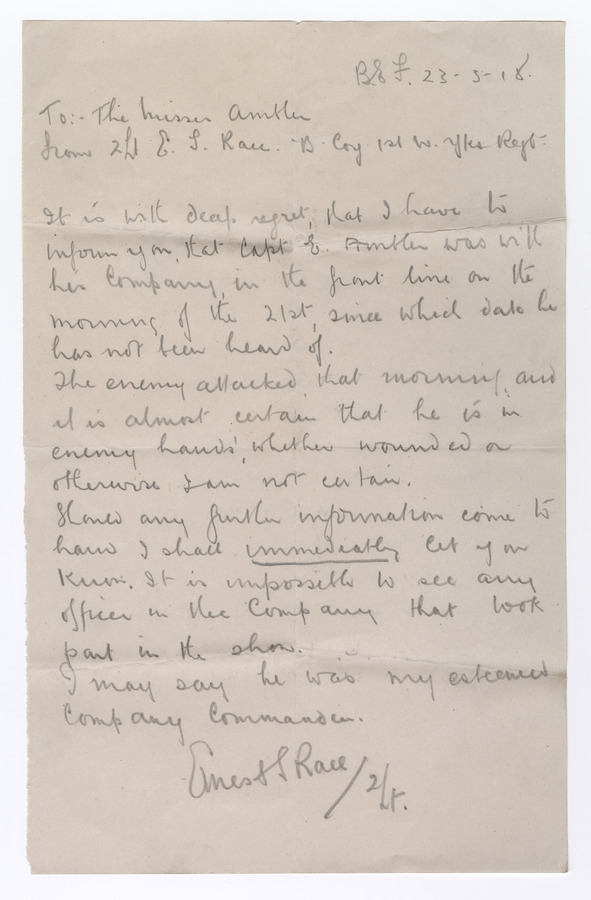 B.E.F. 23-3-18.
To:- The Misses Ambler
from 2/Lt E. S. Race. B Coy 1st W. Yks Regt.
It is with deep regret, that I have to
inform you, that Capt E. Ambler was with
his Company, in the front line on the
morning of the 21st, since which date he
has not been heard of.
The enemy attacked, that morning, and
it is almost certain that he is in
enemy hands', whether wounded or
otherwise I am not certain.
Should any further information come to
hand I shall immediately let you
know. It is impossible to see any
officer in the Company that took
part in the show.
I may say he was my esteemed
Company Commander.
Ernest S Race / 2/Lt.